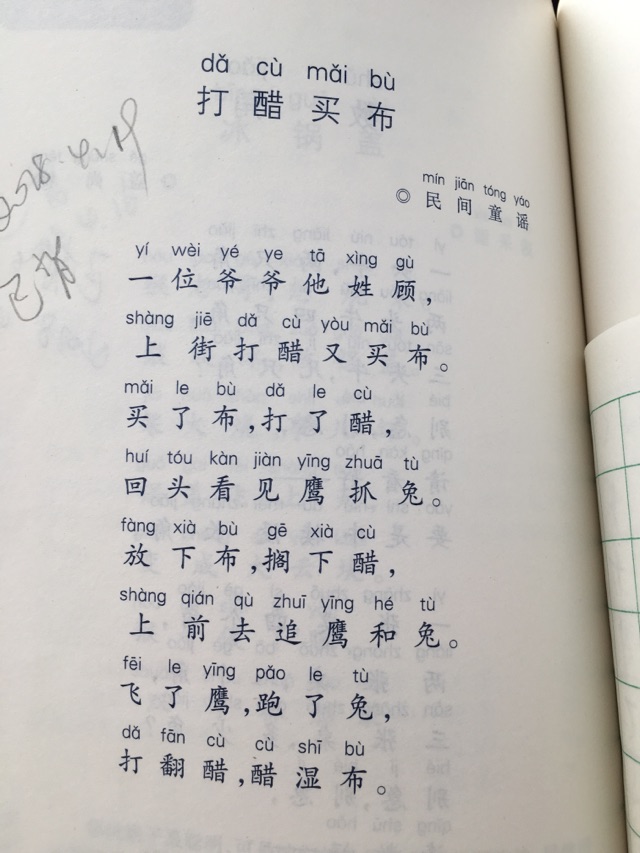 dǎ cù mǎi bù
打醋买布
mín jiān tóng yáo
◎民间童谣
yí wèi yé ye tā xìng gù
一位爷爷他姓顾，
shàng jiē dǎ cù yòu mǎi bù
上街打醋又买布。
mǎi le bù dǎ le cù
买了布，打了醋，
huí tóu kàn jiàn yīng zhuā tù
回头看见鹰抓兔。
fàng xià bù gē xià cù
放下布，搁下醋，
shàng qián qù zhuī yīng hé tù
上前去追鹰和兔。
fēi le yīng pǎo le tù
飞了鹰，跑了兔，
dǎ fān cù cù shī bù
打翻醋，醋湿布。
已背